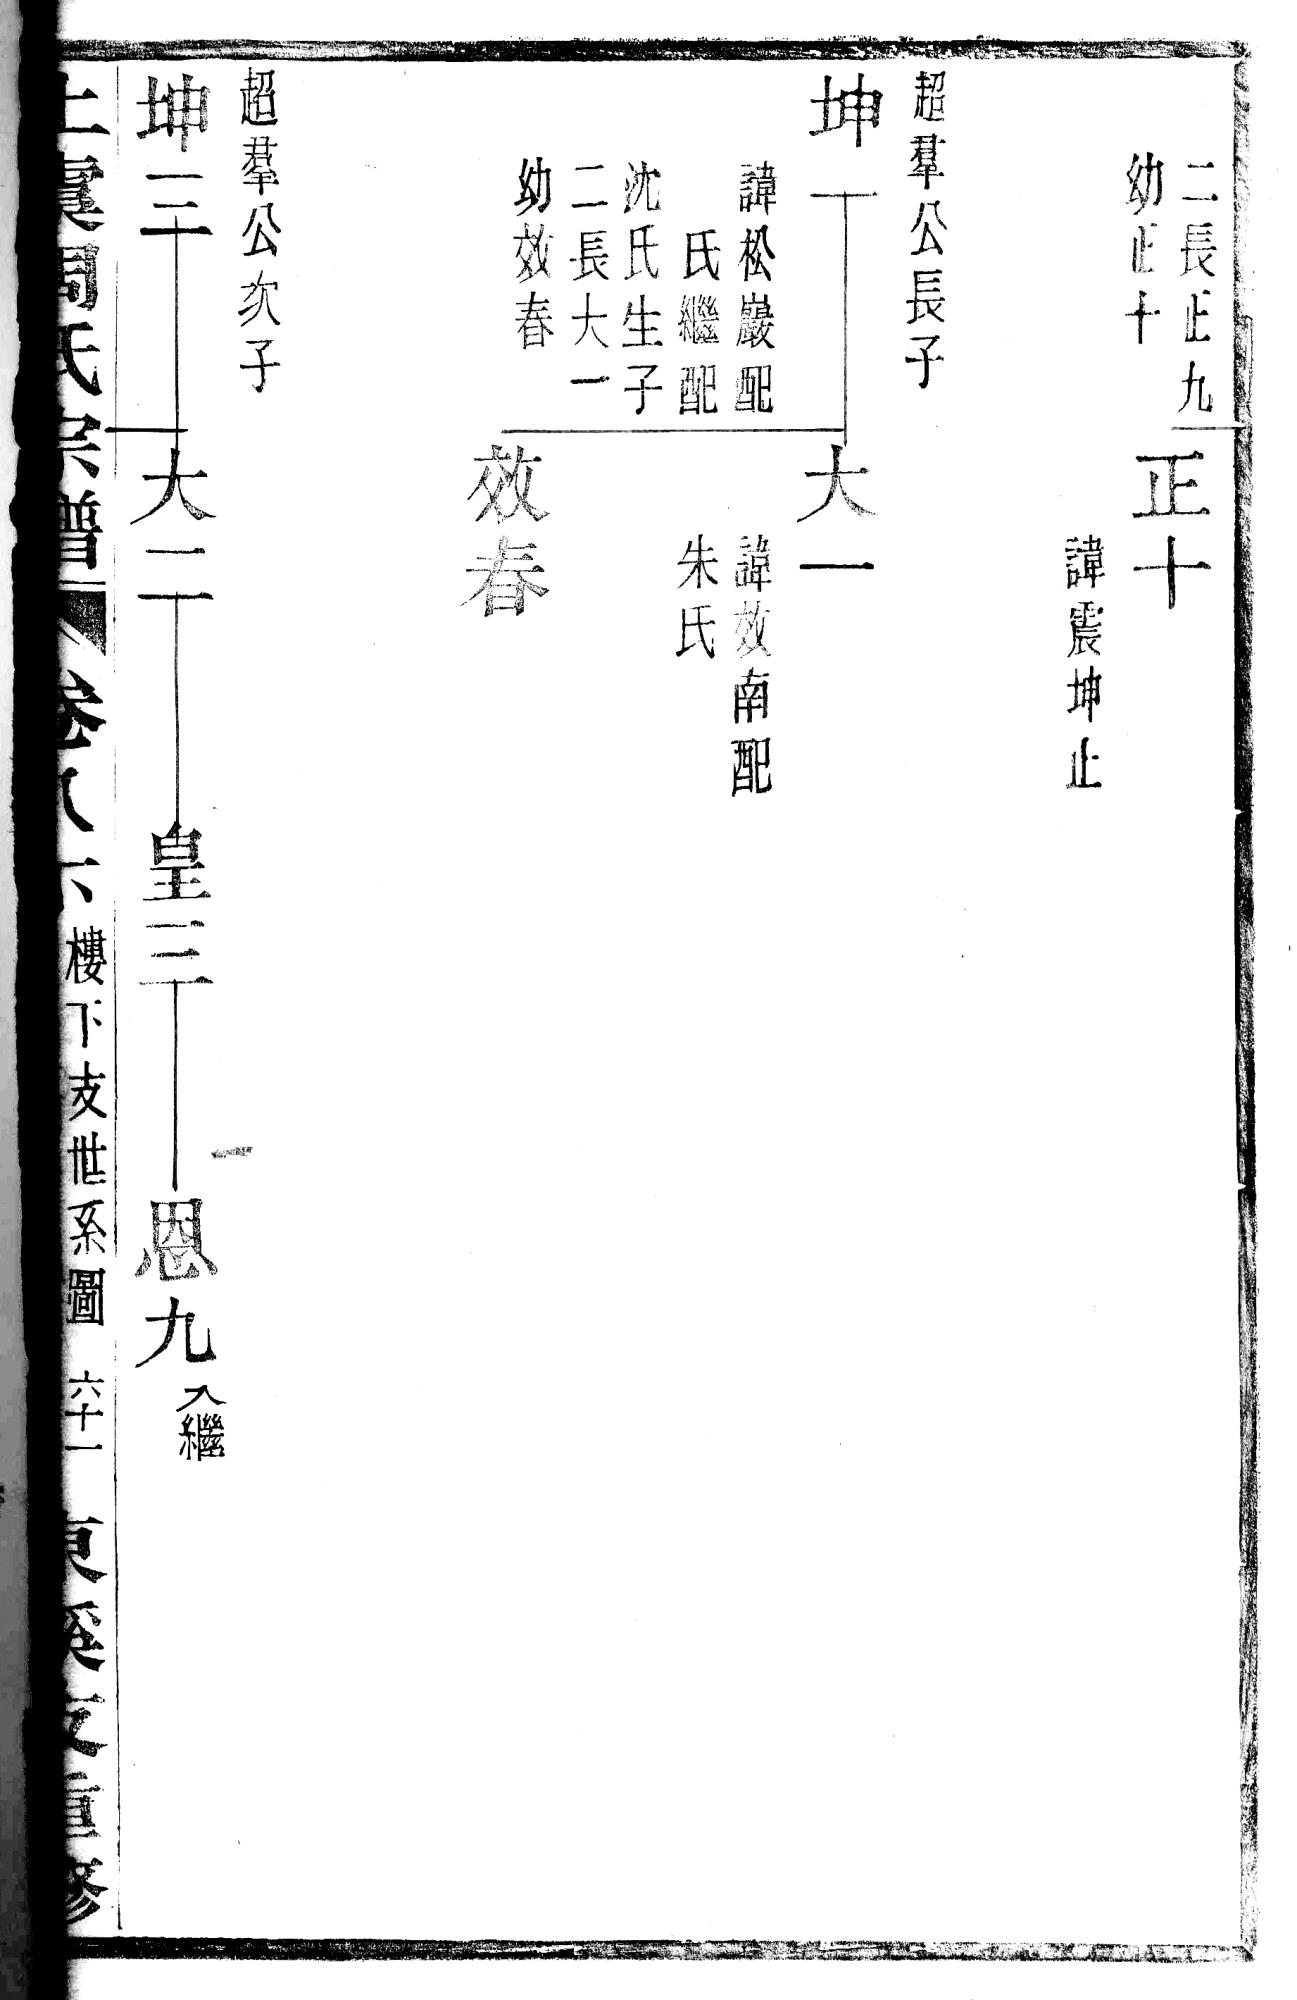 二長正九
幼正十
正十
諱震坤止
超羣公長子
坤一
諱松巖配
氏繼配
沈氏生子
二長大一
幼效春
大一
諱效南配
朱氏
效春
超羣公次子
坤三
大二
皇三
恩九入繼
上虞周氏宗譜 卷八六 樓下支世系圖 六十一 東溪支重修